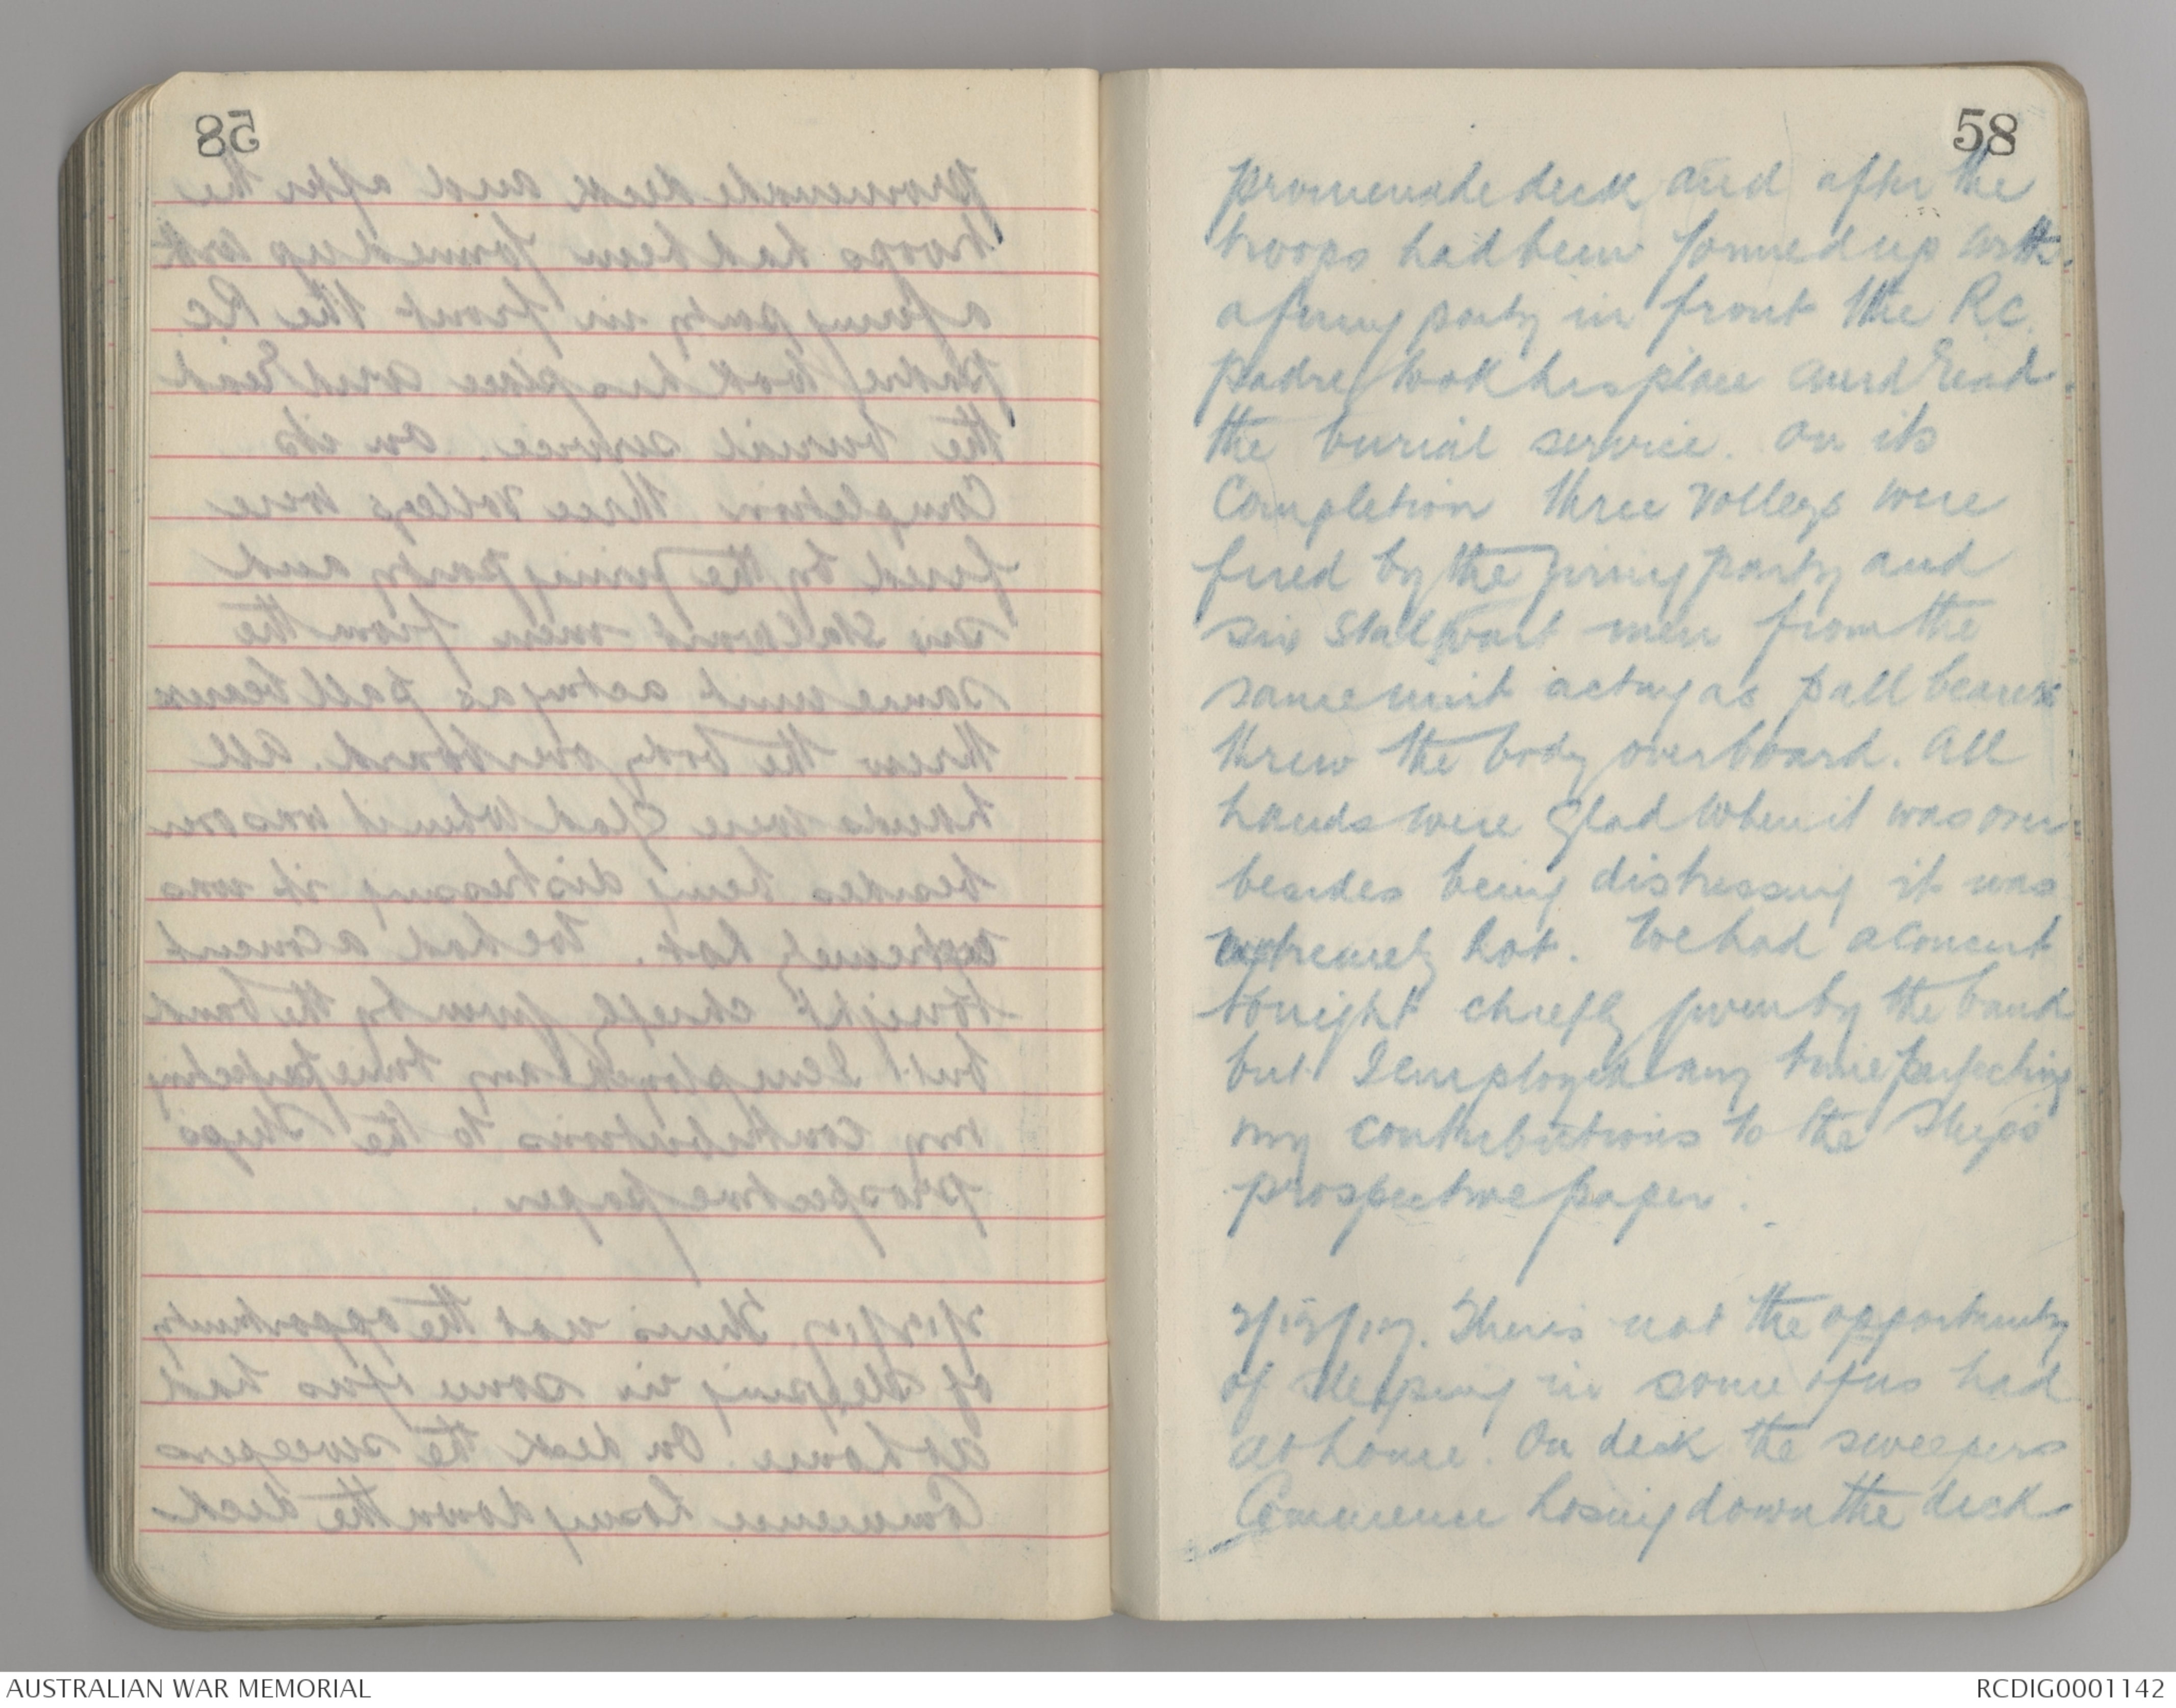 58
promenade deck and after the
troops had been formed up with
a firing party in front the R.C.
padre took his place and read
the burial service. On its
completion three volleys were
fired by the firing party and
six stalwart men from the
same unit acting as pall bearers
threw the body overboard. All
hands were glad when it was over
besides being distressing it was
extremely hot. We had a concert
tonight chiefly given by the band
but I employed my time perfecting
my contributions to the Ship's
prospective paper.
There is not the opportunity
of sleeping in some of us had
at home. On deck the sweepers
Commence hosing down the deck
AUSTRALIAN WAR MEMORIAL
RCDIG0001142